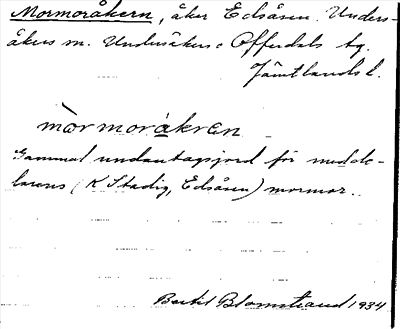 Mormoråkern, åker Edsåsen. Unders-
åkers sn. Undersåkers o Offerdals tg.
Jämtlands l.
mòrmorákren
Gammal undantagsjord för medde-
larens (K Stadig, Edsåsen) mormor.
Bertil Blomstrand 1934